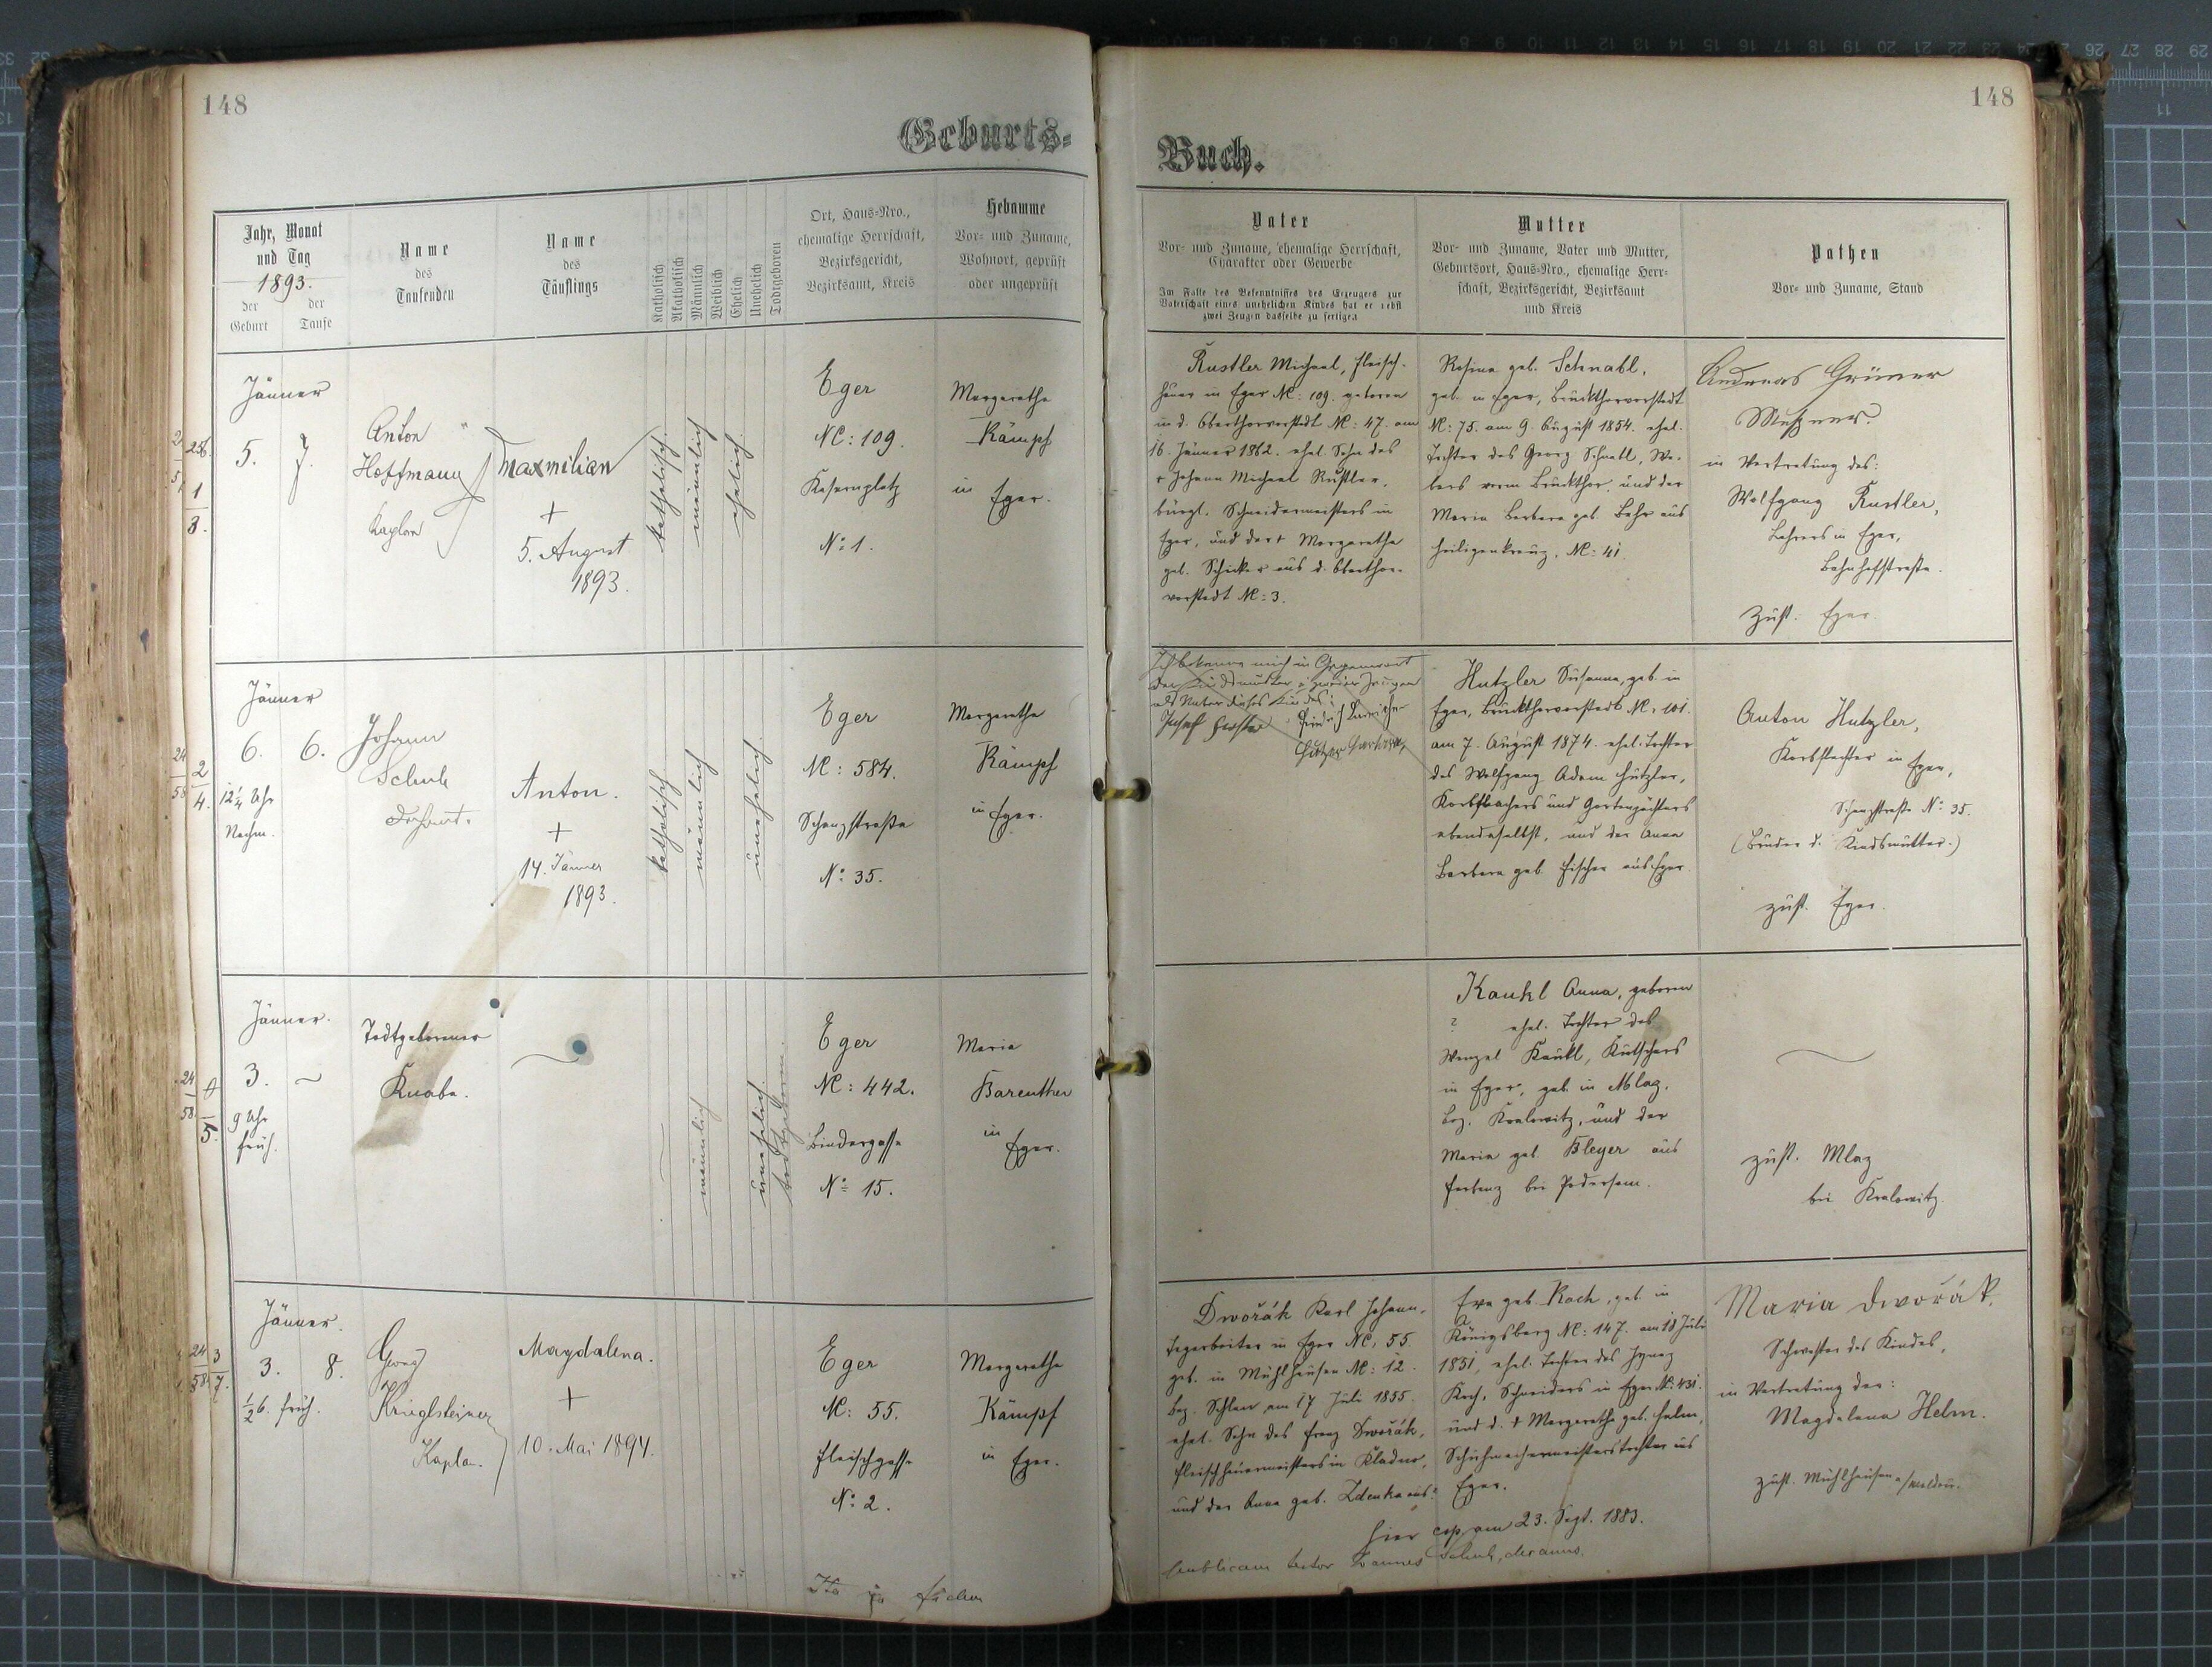 148
Geburts-
Jahr, Monat
und Tag
1893.
der
Geburt
der
Taufe
Name
des
Taufenden
Name
des
Täuflings
Katholisch
Akatholisch
Männlich
Weiblich
Ehelich
Unehelich
Todtgeboren
Ort, Haus-Nro.,
ehemalige Herrschaft,
Bezirksgericht,
Bezirksamt, Kreis
Hebamme
Vor- und Zuname,
Wohnort, geprüft
oder ungeprüft
Jänner
5.
7.
Anton
Hoffmann
Kaplan
Maxmilian
+
5. August
1893.
katholisch
männlich
ehelich
Eger
NC: 109.
Kasernplatz
No 1.
Margaretha
Kämpf
in Eger.
Jänner
6.
6.
12¼ Uhr
Nachm.
Johann
Schuh
Dechant.
Anton.
+
14. Jänner
1893.
katholisch
männlich
unehelich
Eger
NC: 584.
Schanzstraße
No 35.
Margaretha
Kämpf
in Eger.
Jänner.
3.
9 Uhr
früh.
Todtgeborener
Knabe.
männlich
unehelich
todtgeboren.
Eger
NC: 442.
Bindergasse
No 15.
Maria
Bareuther
in Eger.
Jänner.
3.
8.
½6. früh.
Georg
Krieglsteiner
Kaplan.
Magdalena.
+
10. Mai 1894.
Eger
NC: 55.
Fleischgasse
No 2.
Margaretha
Kämpf
in Eger.
148
Buch.
Vater
Vor- und Zuname, ehemalige Herrschaft,
Charakter oder Gewerbe
Im Falle des Bekenntnisses des Erzeugers zur
Vaterschaft eines unehelichen Kindes hat er nebst
zwei Zeugen dasselbe zu fertigen
Mutter
Vor- und Zuname, Vater und Mutter,
Geburtsort, Haus-Nro., ehemalige Herr-
schaft, Bezirksgericht, Bezirksamt
und Kreis
Pathen
Vor- und Zuname, Stand
Rustler Michael, Fleisch-
hauer in Eger NC: 109. geboren
in d. Oberthorvorstadt NC: 47. am
16. Jänner 1862. ehel. Sohn des
+ Johann Michael Rustler,
bürgl. Schneidermeisters in
Eger, und der + Margaretha
geb. Schicker aus d. Oberthor-
vorstadt NC: 3.
Rosina geb. Schnabl,
geb. in Eger, Bruckthorvorstadt
NC: 75. am 9. August 1854. ehel.
Tochter des Georg Schnabl, We-
bers vorm Bruckthor, und der
Maria Barbara geb. Lehr aus
Heiligenkreuz, NC: 41.
Andreas Grüner
Meßner.
in Vertretung des:
Wolfgang Rustler,
Lehrers in Eger,
Bahnhofstraße.
zust. Eger.
Ich bekenne mich in Gegenwart
der Kindsmutter u. zweier Zeugen
als Vater dieses Kindes:
Josef
Hutzler Susanna, geb. in
Eger, Bruckthorvorstadt NC: 101.
am 7. August 1874. ehel. Tochter
des Wolfgang Adam Hutzler,
Korbflechters und Gartenpächters
ebendaselbst, und der Anna
Barbara geb. Fischer aus Eger.
Anton Hutzler,
Korbflechter in Eger,
Schanzstraße No 35.
(Bruder d. Kindsmutter.)
zust. Eger.
Kaukl Anna, geboren
? ehel. Tochter des
Wenzel Kaukl, Kutschers
in Eger, geb. in Mlaz,
bez. Kralowitz, und der
Maria geb. Bleyer aus
bei Podersam.
zust. Mlaz
bei Kralowitz.
Dwořák Karl Johann,
Tagarbeiter in Eger NC: 55.
geb. in Mühlhausen NC: 12.
bez. Schlan am 17 Juli 1855.
ehel. Sohn des Franz Dwořák,
Fleischhauermeisters in Kladno,
und der Anna geb. Zdenka aus:
Eva geb. Koch, geb. in
Königsberg NC: 147. am 18 Juli
1851, ehel. Tochter des Ignaz
Koch, Schneiders in Eger NC: 431.
und d. + Margaretha geb. Helm,
Schuhmachermeisterstochter aus
Eger.
hier cop. am 23. Sept. 1883.
Maria Dwořák,
Schwester des Kindes,
in Vertretung der:
Magdalena Helm.
zust. Mühlhausen a/Moldau.
Joannes Schuh, decanus.